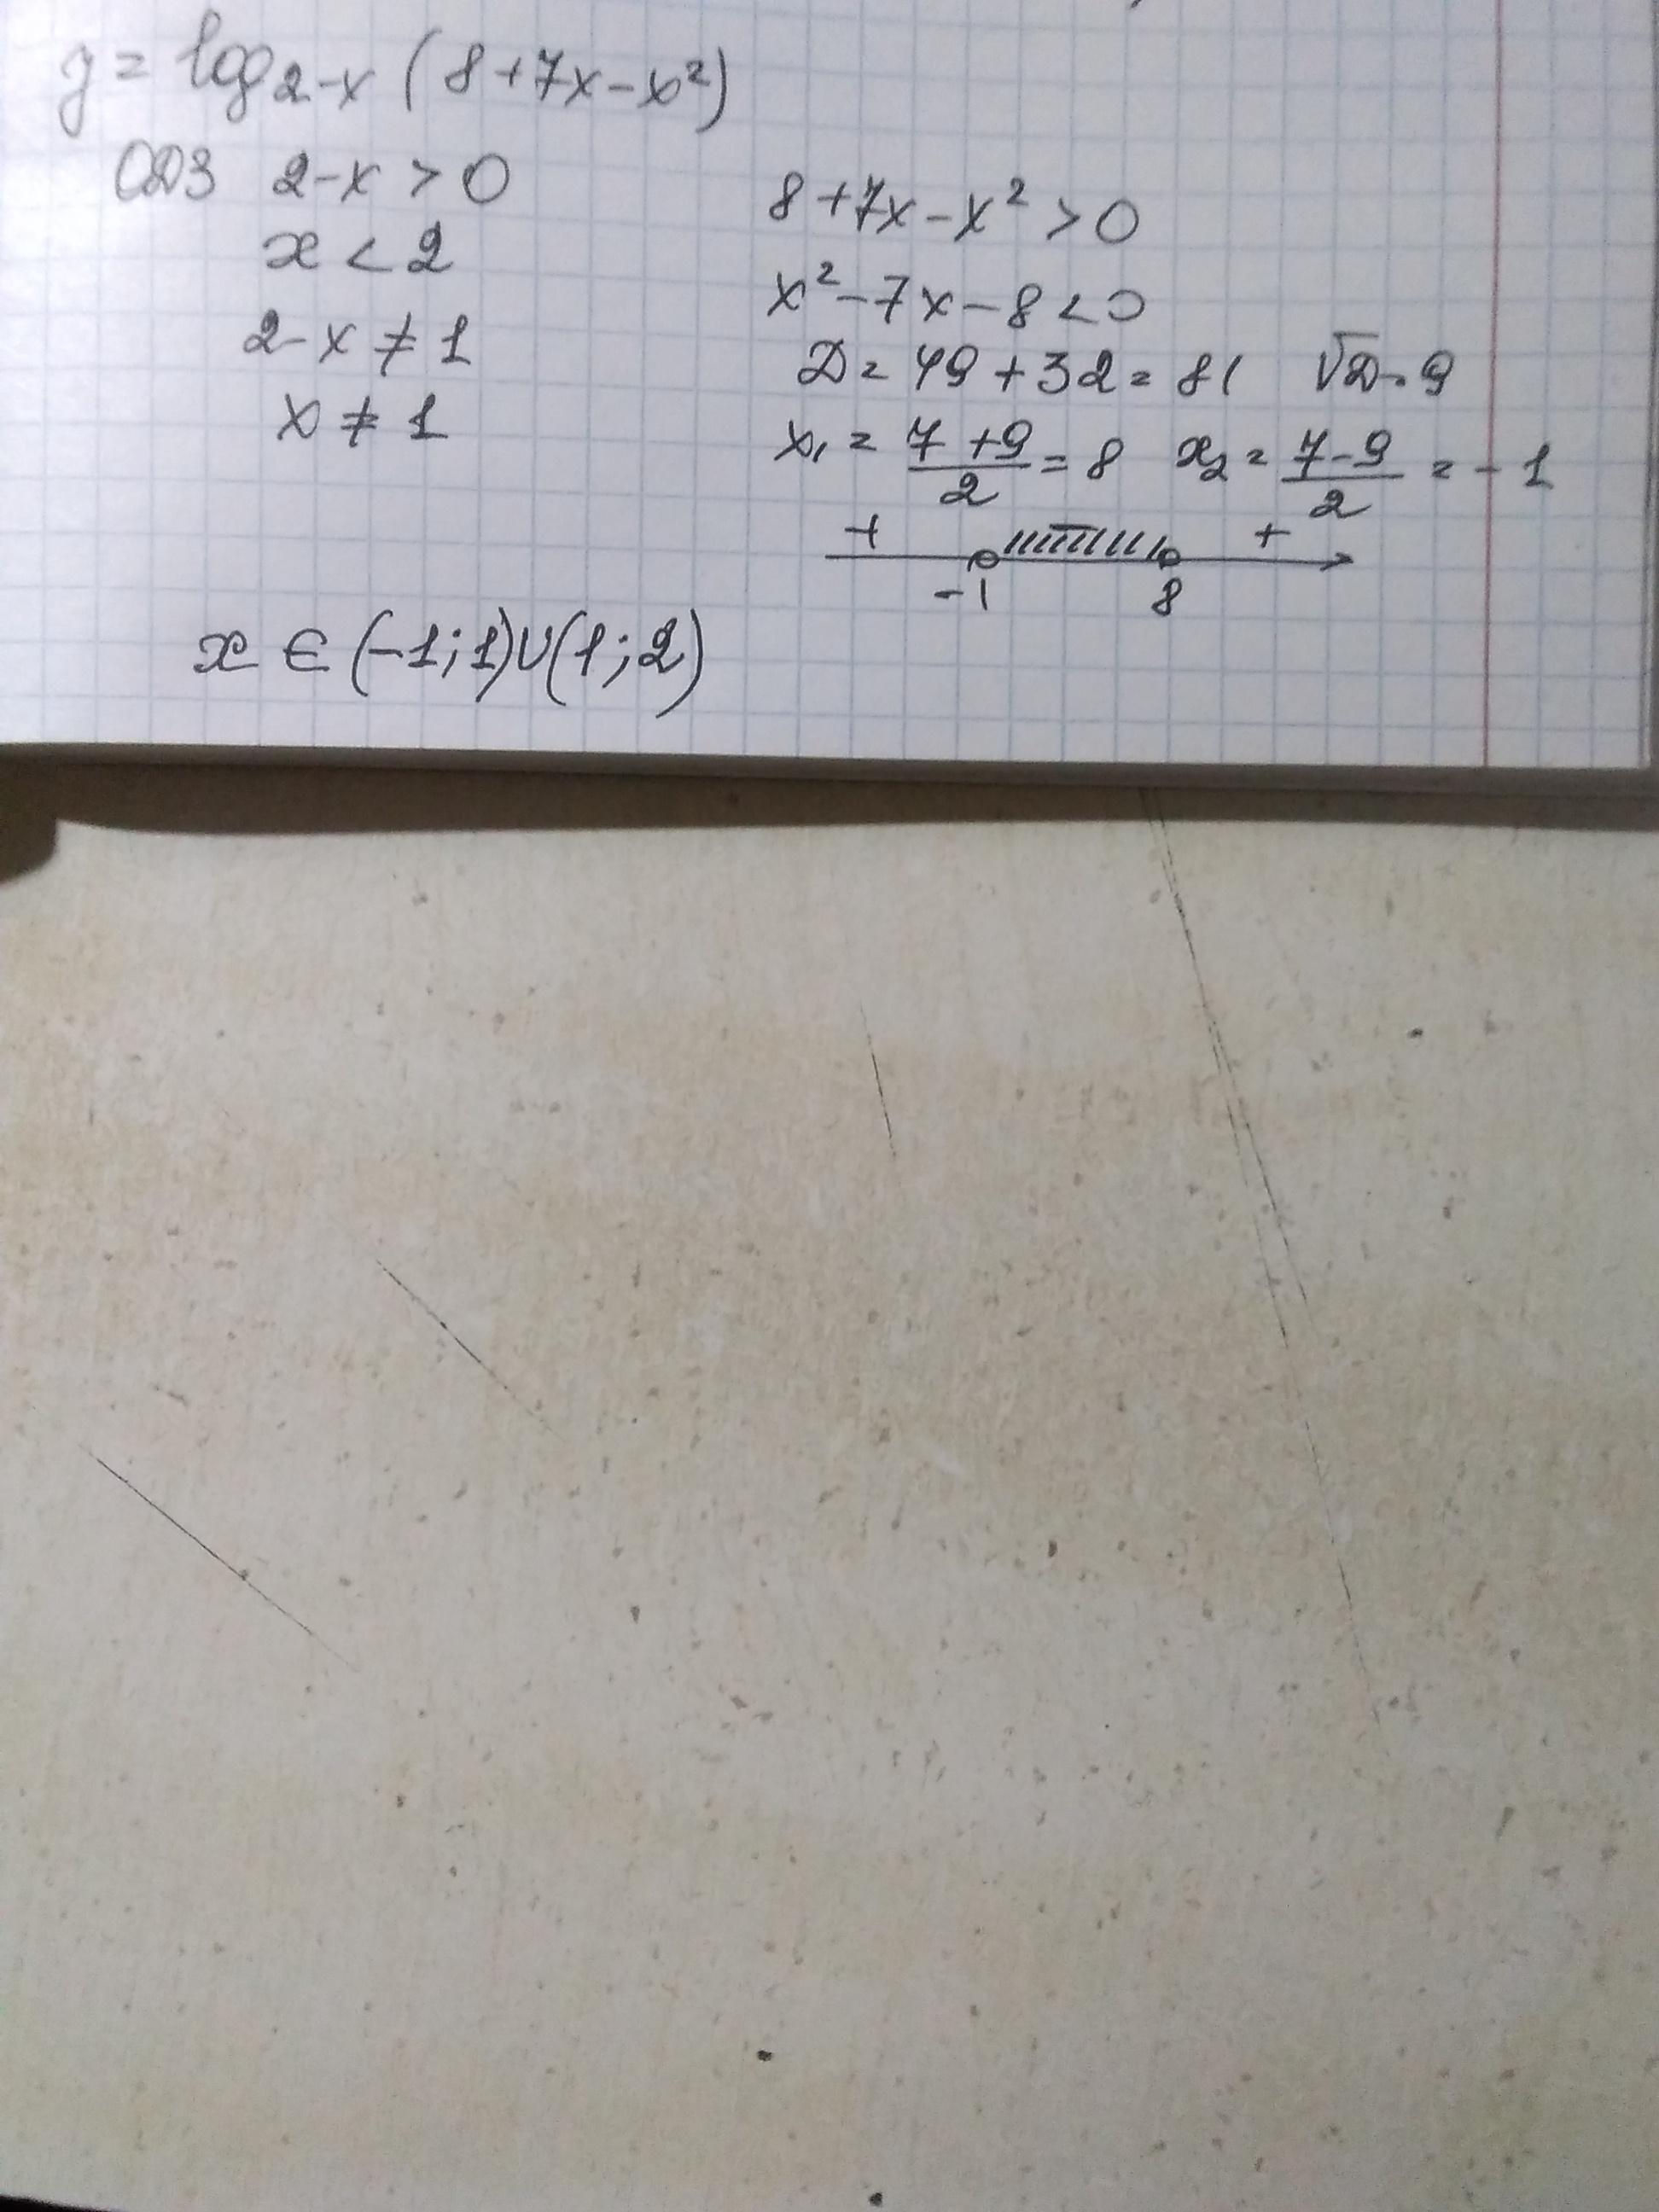 y = log₂₋ₓ (8+7x-x²)
ОДЗ 2-x > 0
x < 2
2-x ≠ 1
x ≠ 1
8+7x-x² > 0
x²-7x-8 < 0
D = 49+32 = 81 √D = 9
x₁ = (7+9)/2 = 8 x₂ = (7-9)/2 = -1
+ - +
-1 8
x ∈ (-1;1)∪(1;2)